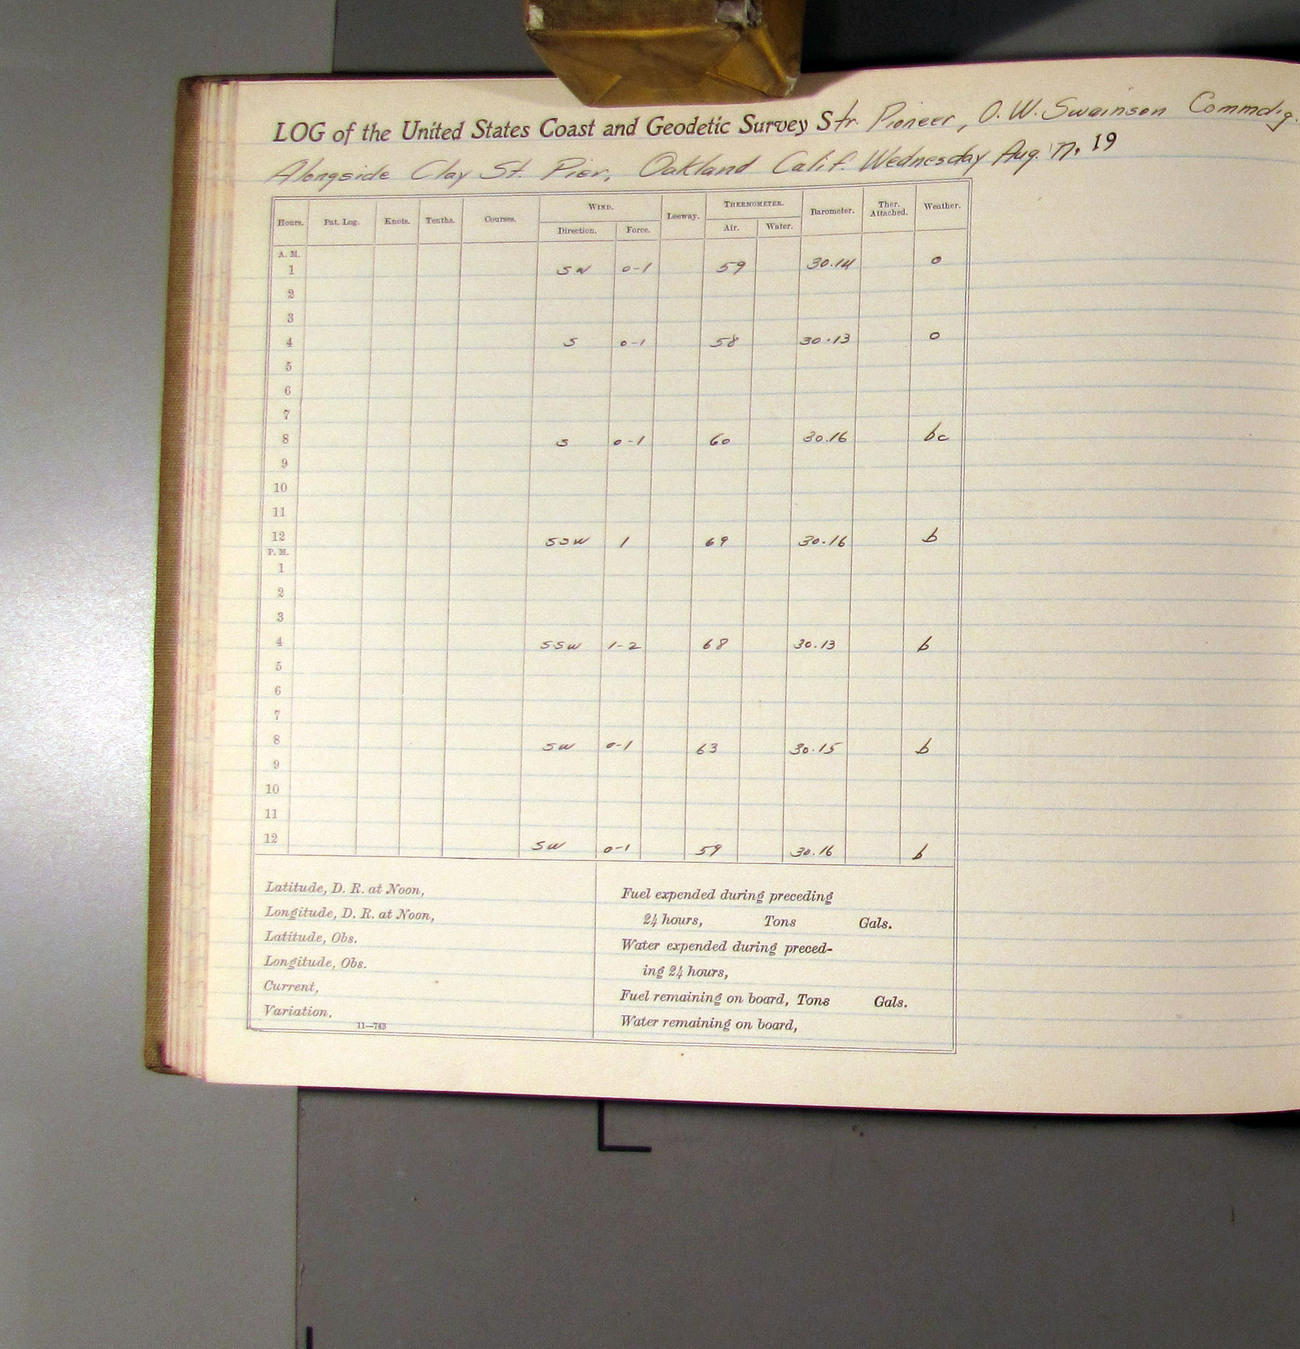 LOG of the United States Coast and Geodetic Survey Str. Pioneer, O. W. Swainson Commdg.
Alongside Clay St. Pier, Oakland Calif. Wednesday Aug. 17, 19
Hours. Pat. Log. Knots. Tenths. Courses. WIND. Leeway. THERMOMETER. Barometer. Ther. Attached. Weather.
Direction. Force. Air. Water.
A. M.
1 SW 0-1 59 30.14 o
2
3
4 S 0-1 58 30.13 o
5
6
7
8 S 0-1 60 30.16 bc
9
10
11
12 SSW 1 69 30.16 b
P. M.
1
2
3
4 SSW 1-2 68 30.13 b
5
6
7
8 SW 0-1 63 30.15 b
9
10
11
12 SW 0-1 59 30.16 b
Latitude, D. R. at Noon,
Longitude, D. R. at Noon,
Latitude, Obs.
Longitude, Obs.
Current,
Variation,
11—763
Fuel expended during preceding
24 hours, Tons Gals.
Water expended during preced-
ing 24 hours,
Fuel remaining on board, Tons Gals.
Water remaining on board,